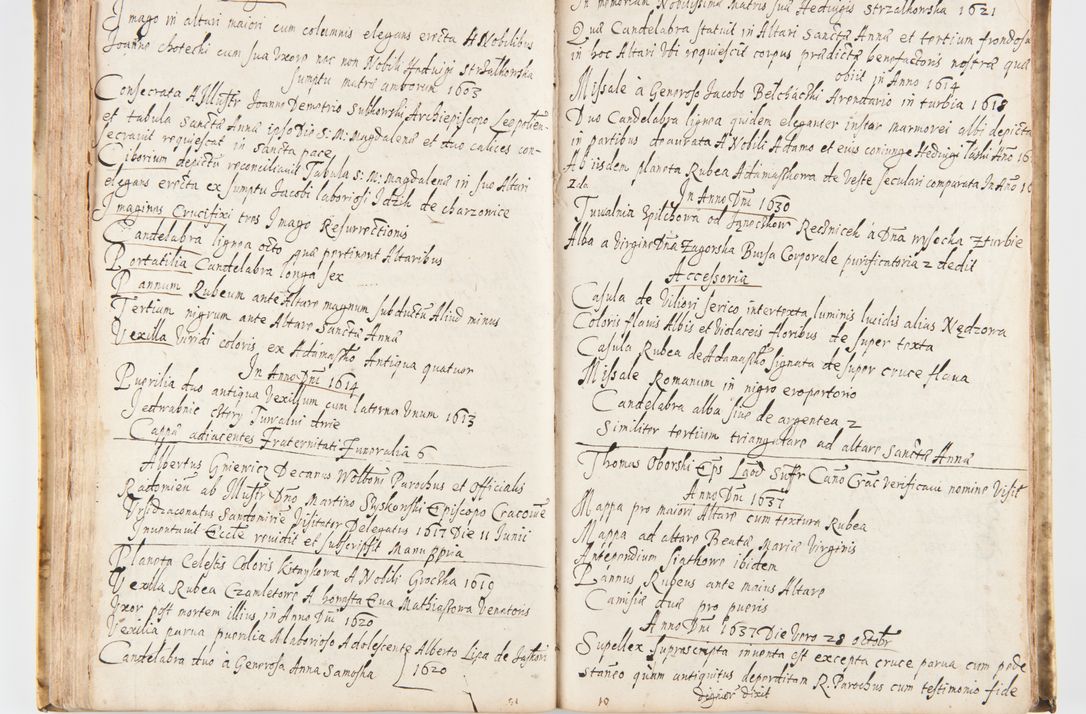 Imago in altari maiori cum columnis elegans erecta A Nobilibus
Joanne chotecki cum sua Uxore nec non Nobili Hedvigi Strzałkowska
sumptu matris amborum 1603
Consecrata A Illustr Joanne Demetrio Sulikowski Archiepiscopo Leopolien-
et tabula Sanctæ Annæ ipso Die S: M: Magdalenæ et duo calices con-
secravit requiescat in sancta pace
Ciborium depictū reconciliavit Tabula S: M: Magdalenæ in suo Altari
elegans erecta ex sumptu Jacobi laboriosi Idzik de charzowice
Imagines Crucifixi tres Imago Resurrectionis
Candelabra lignea octo quæ pertinent Altaribus
Portatilia Candelabra longa sex
Pannum Rubeum ante Altare magnum subductū Aliud minus
Tertium nigrum ante Altare Sanctæ Annæ
Vexilla Viridi coloris ex Adamasko Antiqua quatuor
In Anno Dni 1614
Puerilia duo antiqua Vexillum cum laterna Unum 1613
Jedwabnic cztery Tuwalni dwie
Cappæ adiacentes Fraternitati Funeralia 6
Albertus Gniewic Decanus Wolboni Parochus et Officialis
Radomien ab Illustr Dno Martino Szyskowski Episcopo Cracoviē
Visitator Delegatus 1617 Die 11 Junii
Inventavit Eccle revidit et subscripsit Manu Ppria
Planeta Celestis Coloris kitaykowa A Nobili Grocka 1619
Vexilla Rubea Czamletowe A honesta Eva Mathieskowa Venatoris
Uxor post mortem illius in Anno Dni 1620
Vexilia parva puerilia A laborioso Adolescente Alberto Lipa de
Candelabra duo à Generosa Anna Samoska 1620
In memoriam Nobilissimæ Matris suæ Hedvigis Strzalkowska 1621
Qua Candelabra statuit in Altari Sanctæ Annæ et tertium frondosa
in hoc Altari Uti requiescit corpus prædictæ benefactoris nostræ quæ
obiit in Anno 1614
Missale à Generoso Jacobo Belchacki Arendario in turbia 1618
Duo Candelabra lignea quidem eleganter instar marmorei albi depicta
in partibus deaurata A Nobili Adamo et eius coniuge Hedvigi Año 16
Ab iisdem planeta Rubea Adamaskowa de Veste seculari comparata In Año 16
In Anno Dni 1630
Tuwalnia od Rednicek à Dña wysocka Zturbie
Alba a Virgine Dña Zagorska Bursa Corporale purificatoria 2 dedit
Accessoria
Casula de Viliori serico intertexta luminis lucidis alias Nędzowa
Coloris flavis Albis et Violaceis floribus de super texta
Casula Rubea de Adamasko signata desuper cruce flava
Missale Romanum in nigro eroportorio
Candelabra alba sive de argentea 2
Similiter tertium triangulare ad altare Sanctæ Annæ
Thomas Oborski Eps Laod Suffr Cano Crac verificavi nomine Visit
Anno Dni 1637
Mappa pro maiori Altare cum textura Rubea
Mappa ad altare Beatæ Mariæ Virginis
Antependium siatkowe ibidem
Pannus Rubeus ante maius Altare
Camisiæ duæ pro pueris
Anno Dni 1637 Die Vero 28 octobr
Supellex suprascripta inventa est excepta cruce parva cum pede
staneo quam antiquitus deperditam R. Parochus cum testimonio fide
digniori dixit